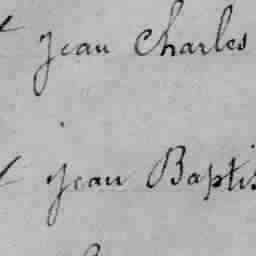 t Jean Charles
t Jean Baptis